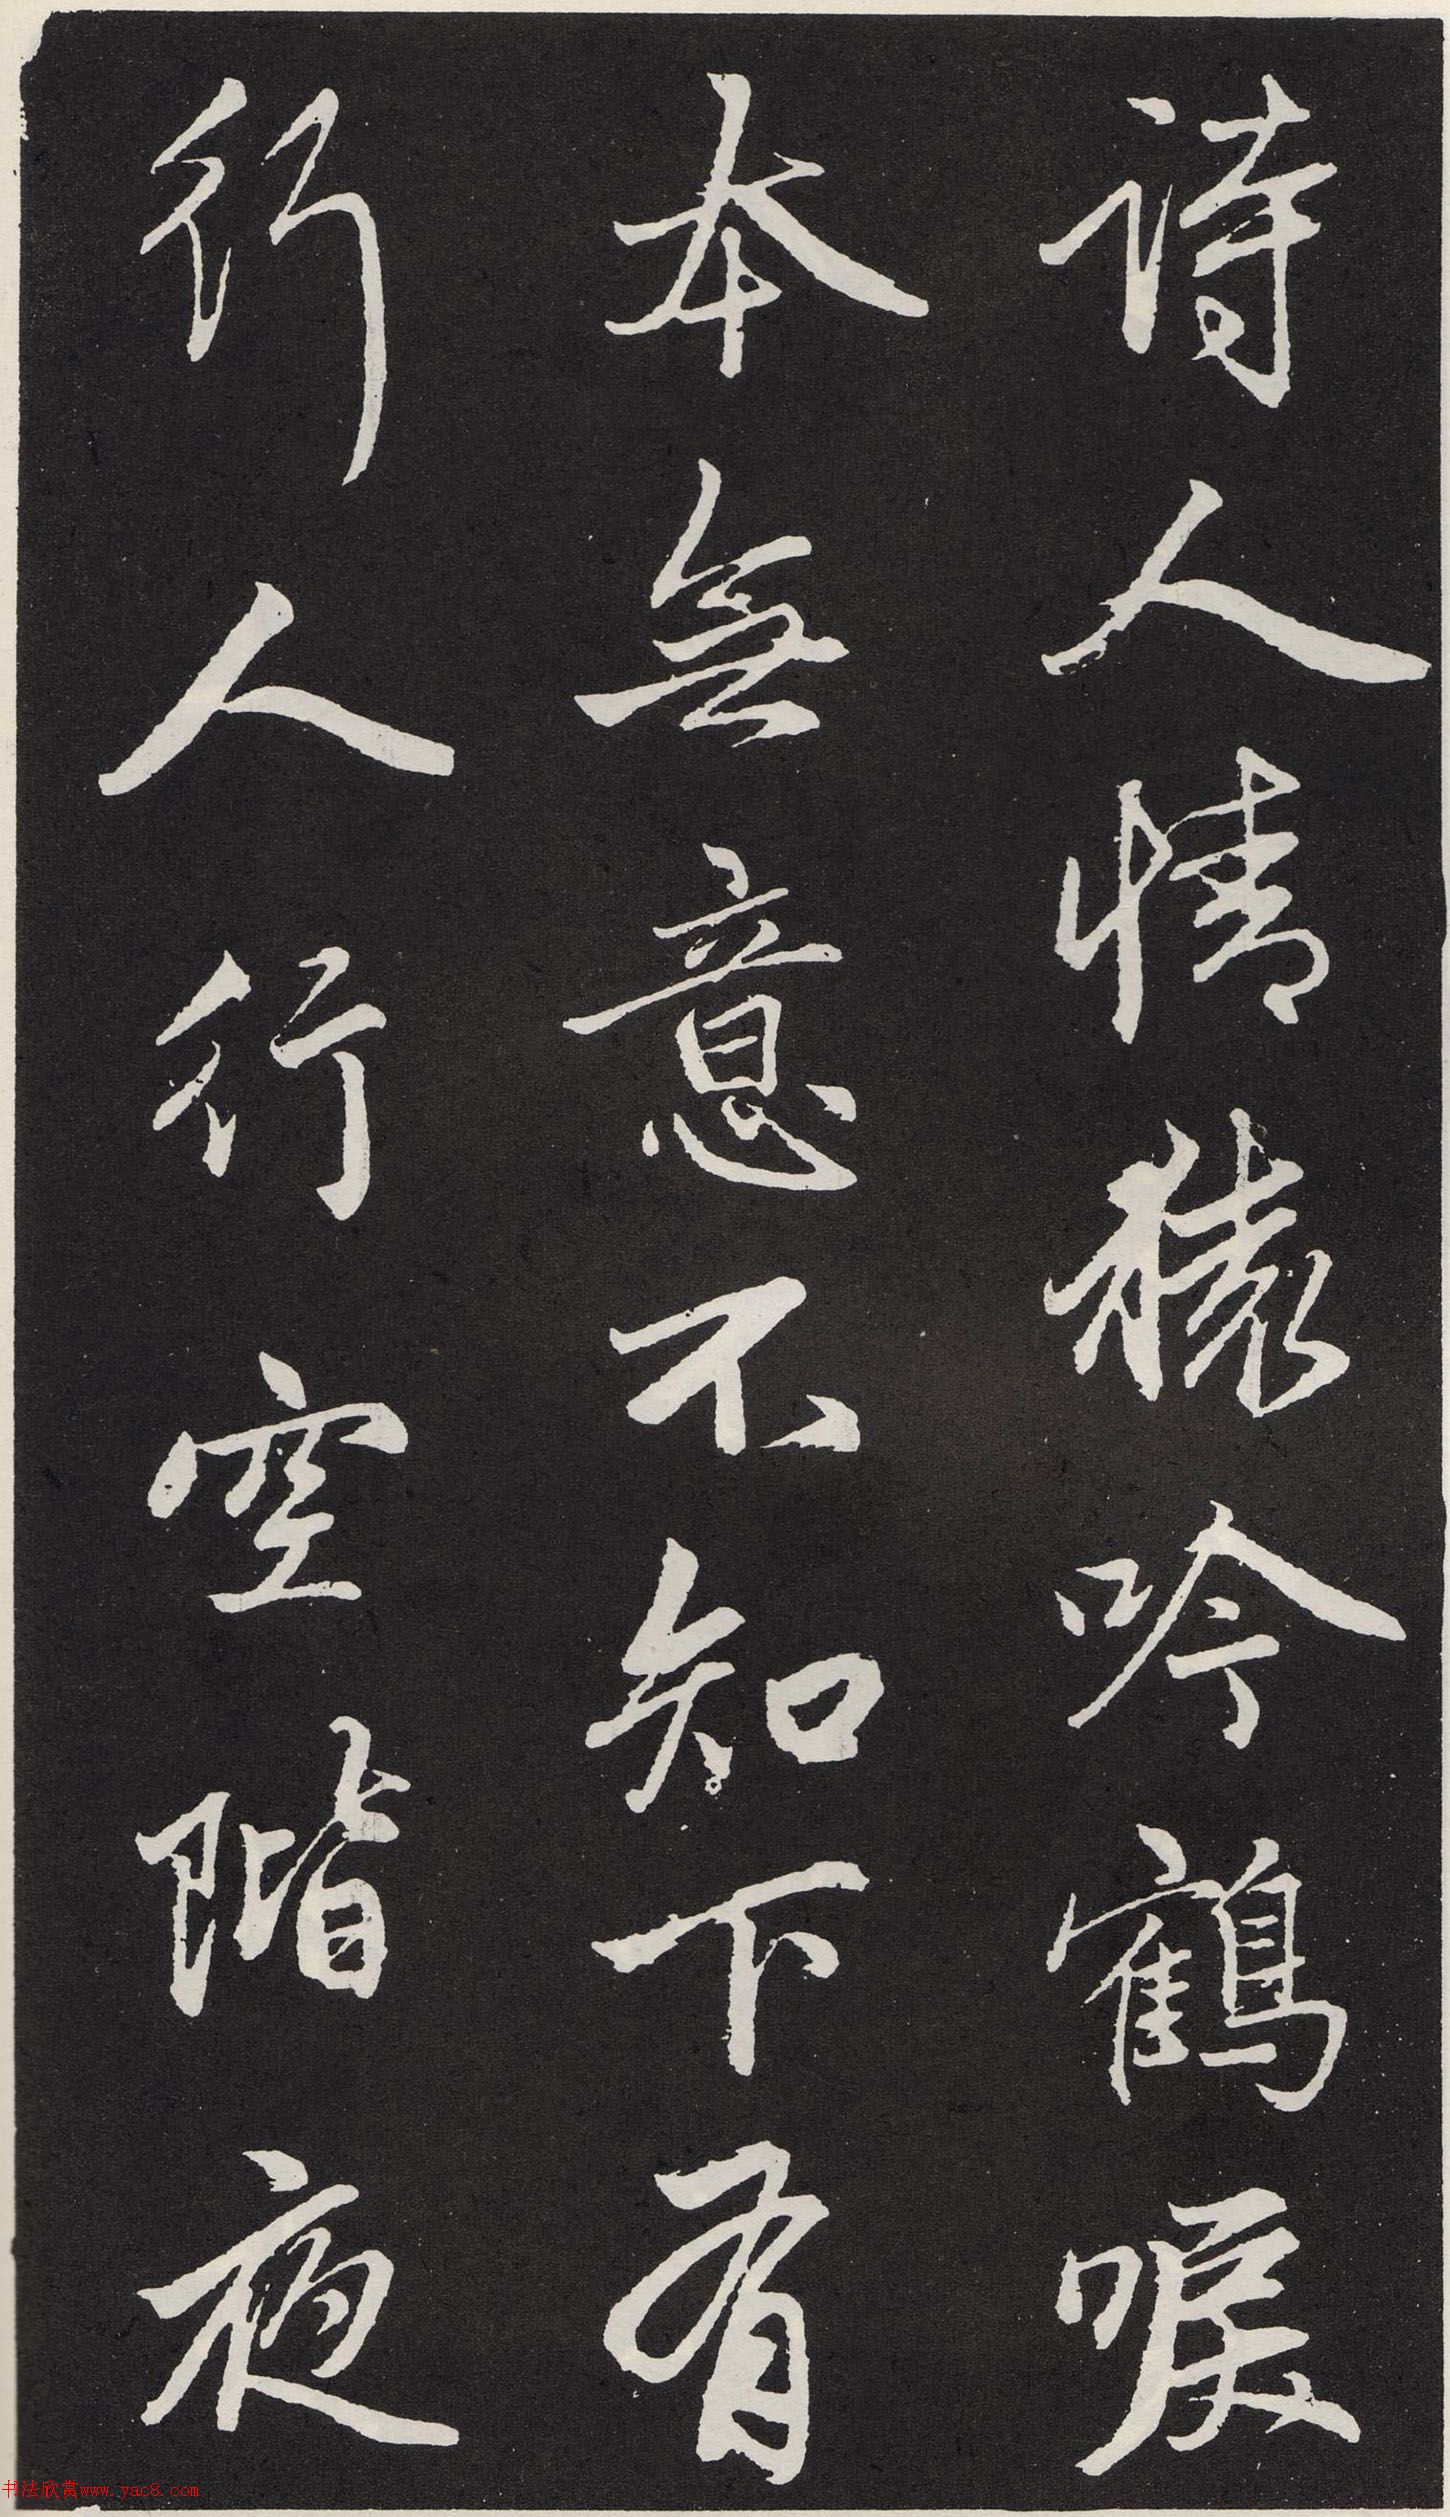 诗人情猿吟鶴唳
本無意不知下有
行人行空階夜
书法欣赏www.yac8.com